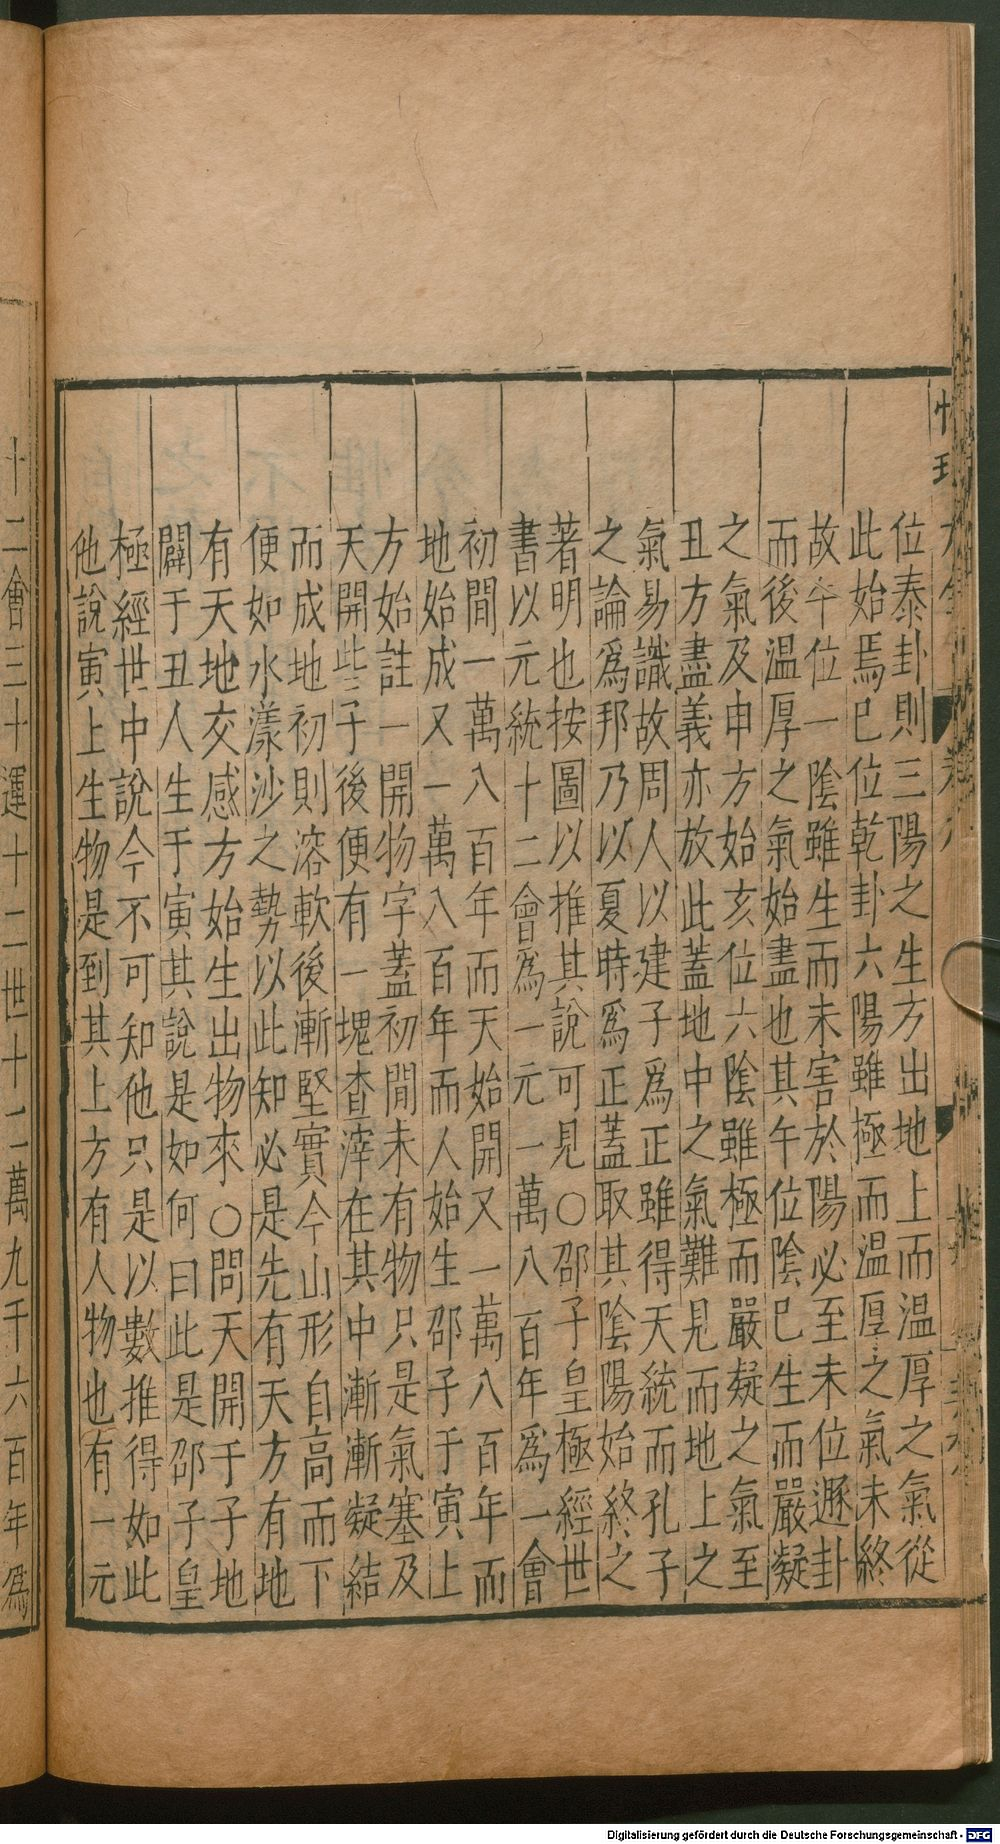 位泰卦則三陽之生方出地上而温厚之氣從
此始焉巳位乾卦六陽雖極而温厚之氣未終
故午位一陰雖生而未害於陽必至未位遯卦
而後温厚之氣始盡也其午位陰巳生而嚴凝
之氣及申方始亥位六陰雖極而嚴凝之氣至
丑方盡義亦放此蓋地中之氣難見而地上之
氣易識故周人以建子爲正雖得天統而孔子
之論爲邦乃以夏時爲正蓋取其陰陽始終之
著明也按圖以推其說可見〇邵子皇極經世
書以元統十二會爲一元一萬八百年爲一會
初間一萬八百年而天始開又一萬八百年而
地始成又一萬八百年而人始生邵子于寅上
方始註一開物字蓋初間未有物只是氣塞及
天開些子後便有一塊査滓在其中漸漸凝結
而成地初則溶軟後漸堅實今山形自高而下
便如水漾沙之勢以此知必是先有天方有地
有天地交感方始生出物來〇問天開于子地
闢于丑人生于寅其說是如何曰此是邵子皇
極經世中說今不可知他只是以數推得如此
他說寅上生物是到其上方有人物也有一元
十二會三十運十二世十二萬九千六百年爲
Digitalisierung gefördert durch die Deutsche Forschungsgemeinschaft - DFG